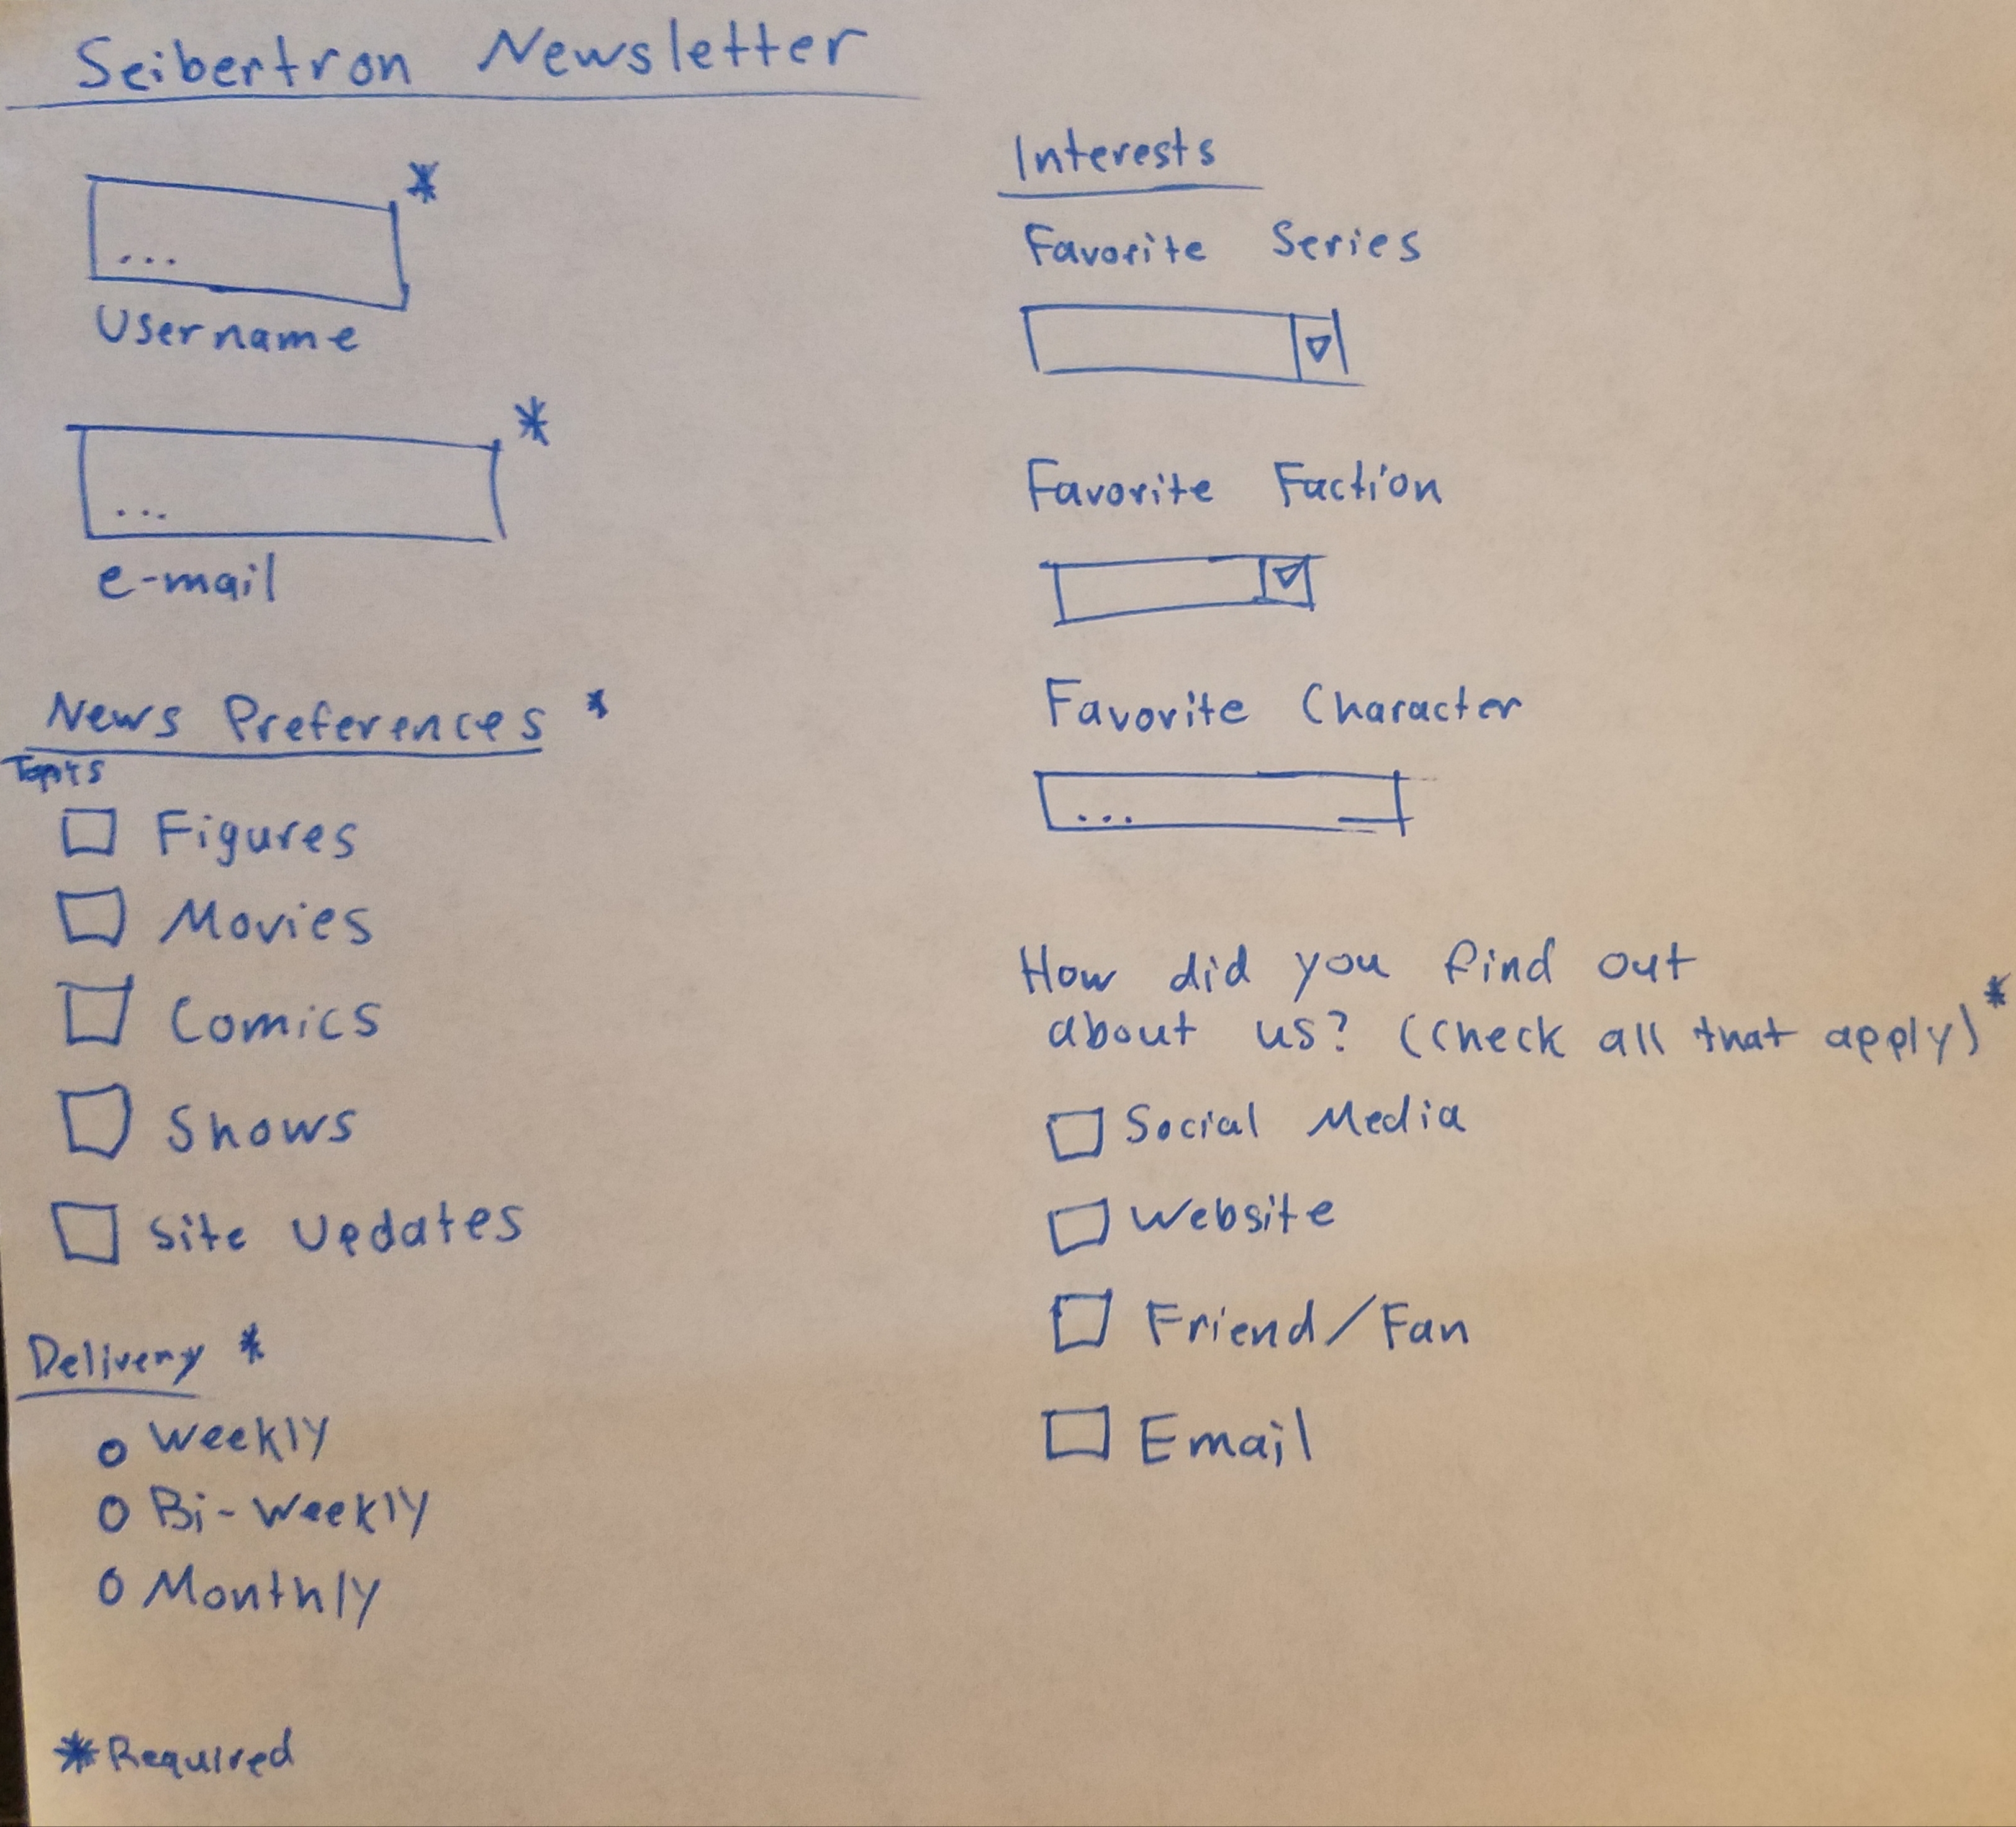 Seibertron Newsletter
*
...
Username
*
...
e-mail
News Preferences *
Topics
Figures
Movies
Comics
Shows
Site Updates
Delivery *
Weekly
Bi-Weekly
Monthly
*Required
Interests
Favorite Series
Favorite Faction
Favorite Character
...
How did you find out
about us? (check all that apply)*
Social Media
Website
Friend/Fan
Email